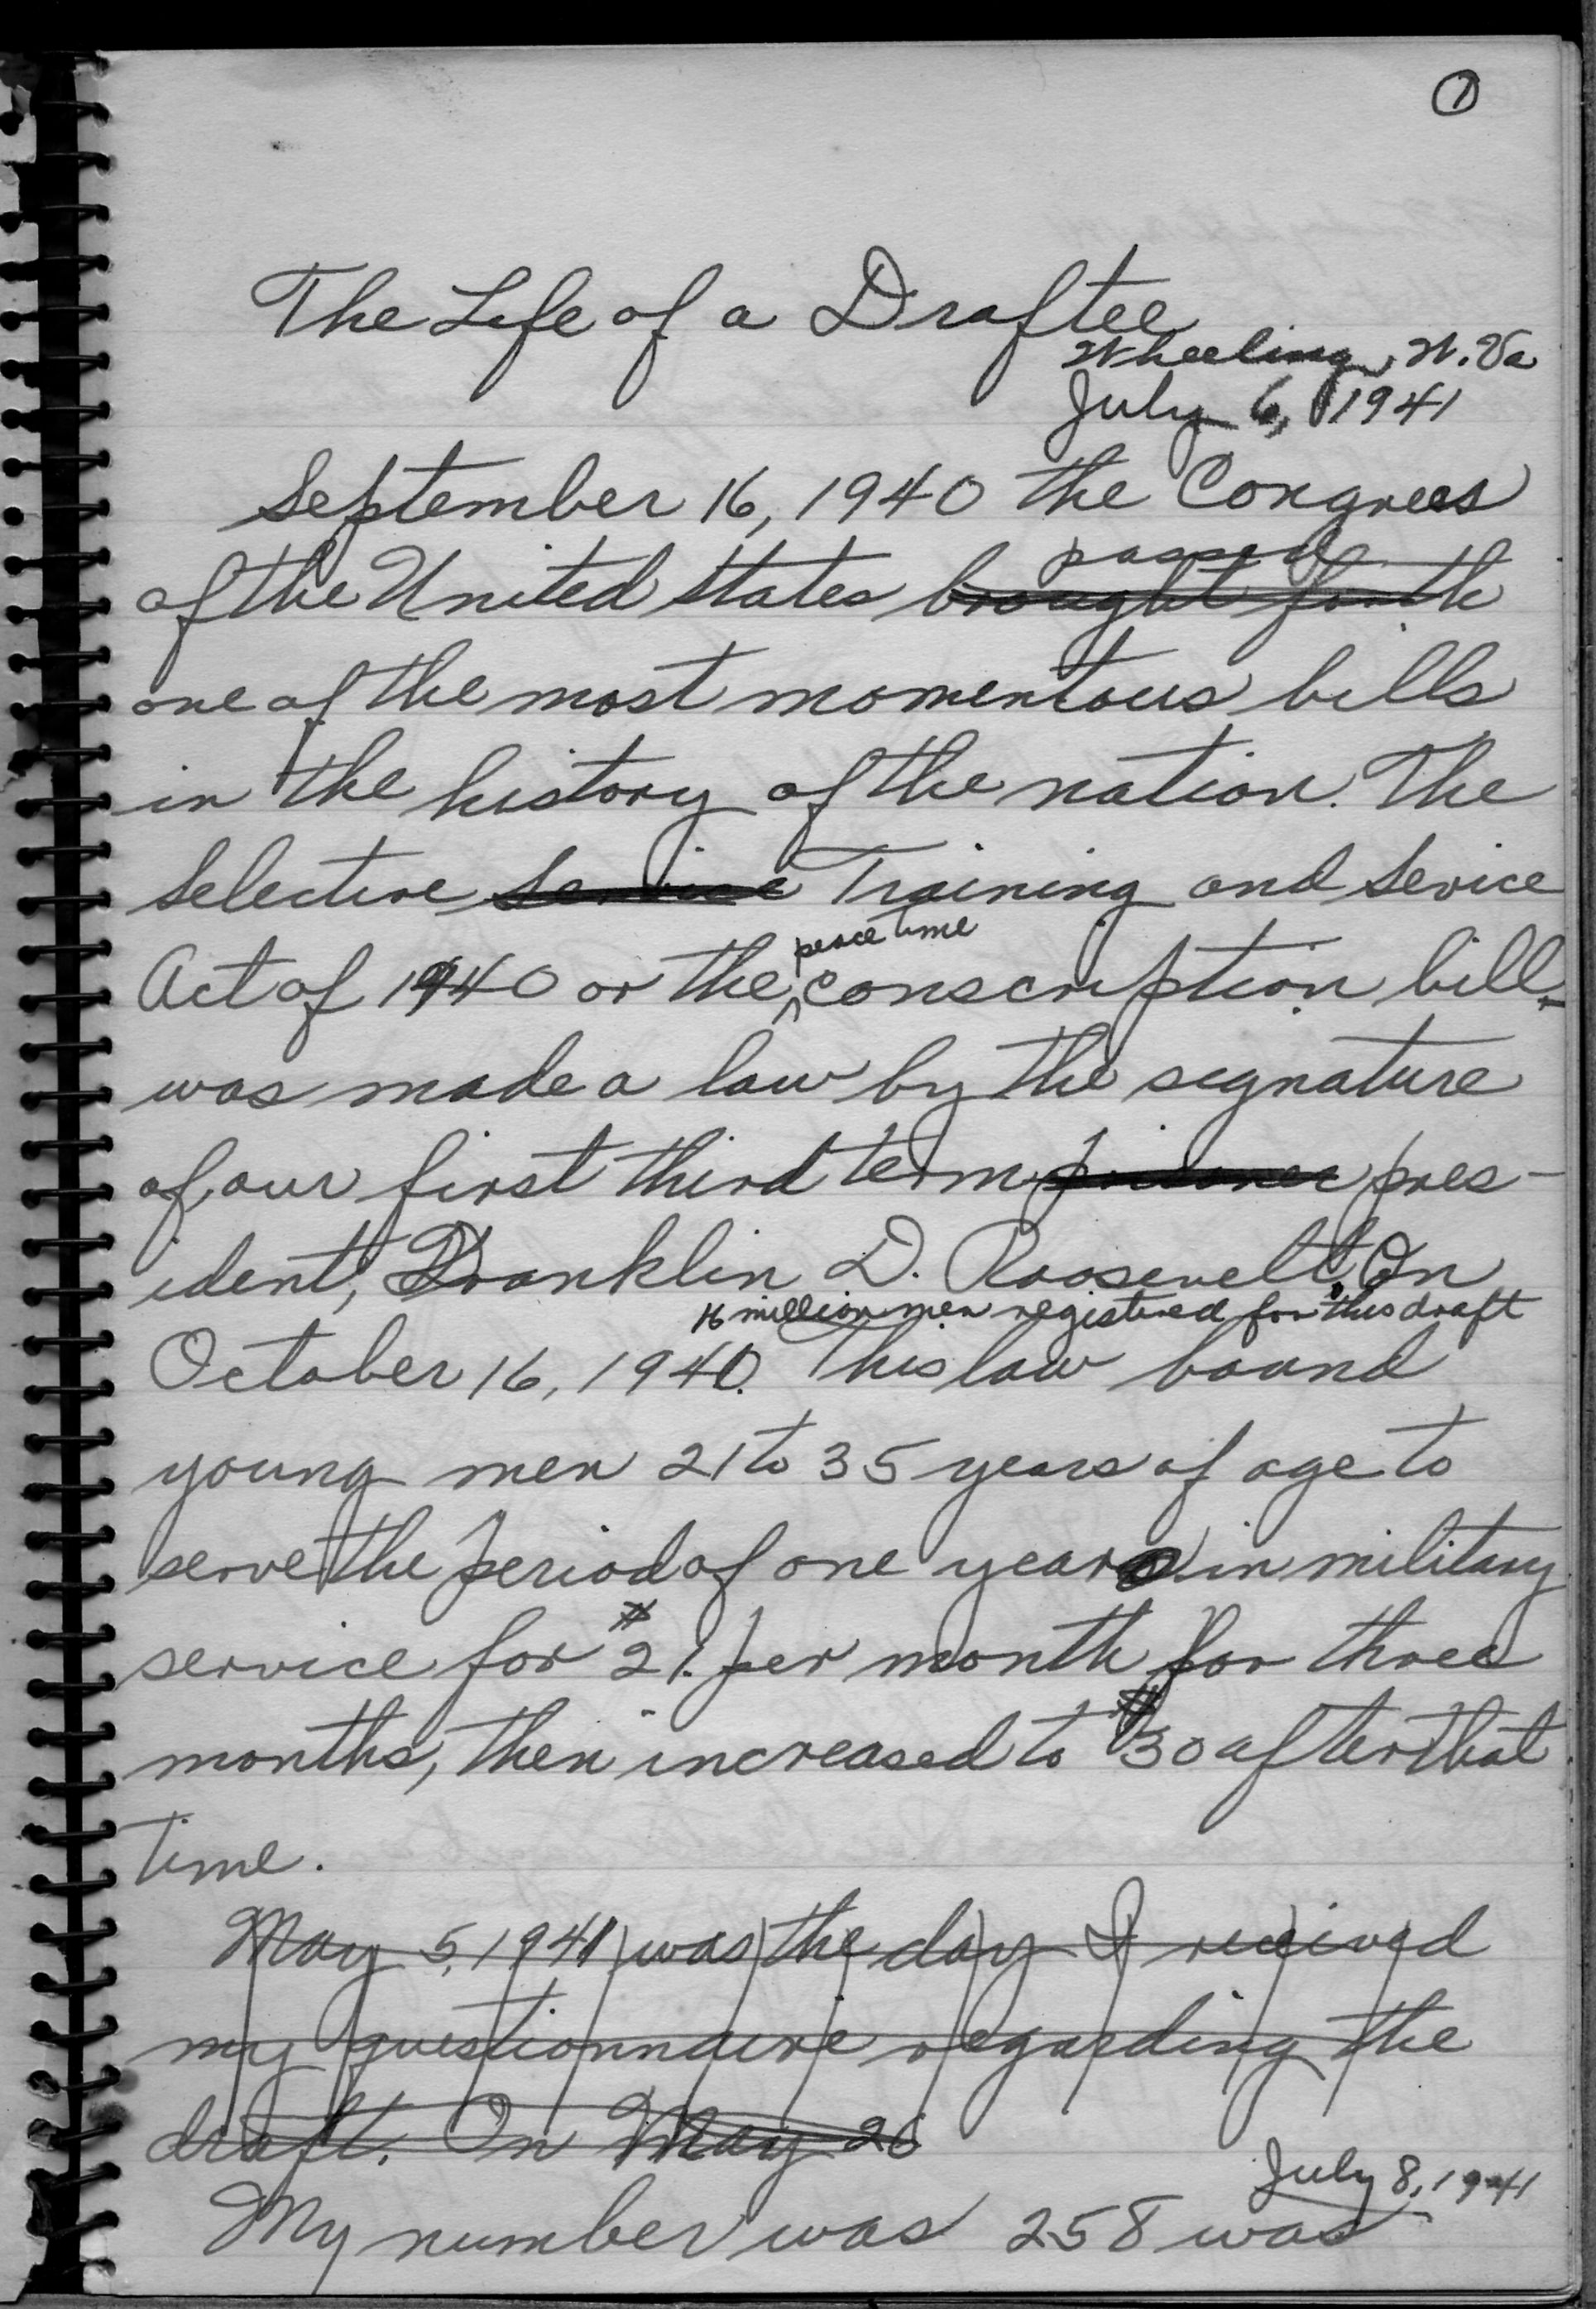 1
The Life of a Draftee
Wheeling, W. Va
July 6, 1941
September 16, 1940 the Congress
passed
of the United States brought forth
one of the most momentous bills
in the history of the nation. The
Selective Service Training and Sevice
peace time
Act of 1940 or the conscription bill
was made a law by the signature
of our first third term pres-
ident, Franklin D. Roosevelt. On
16 million men registered for this draft
October 16, 1940. This law bound
young men 21 to 35 years of age to
serve the period of one year in military
service for $21. per month for three
months, then increased to $30 after that
time.
May 5, 1941 was the day I received
my questionnaire regarding the
draft. On May 26
July 8, 1941
My number was 258 was